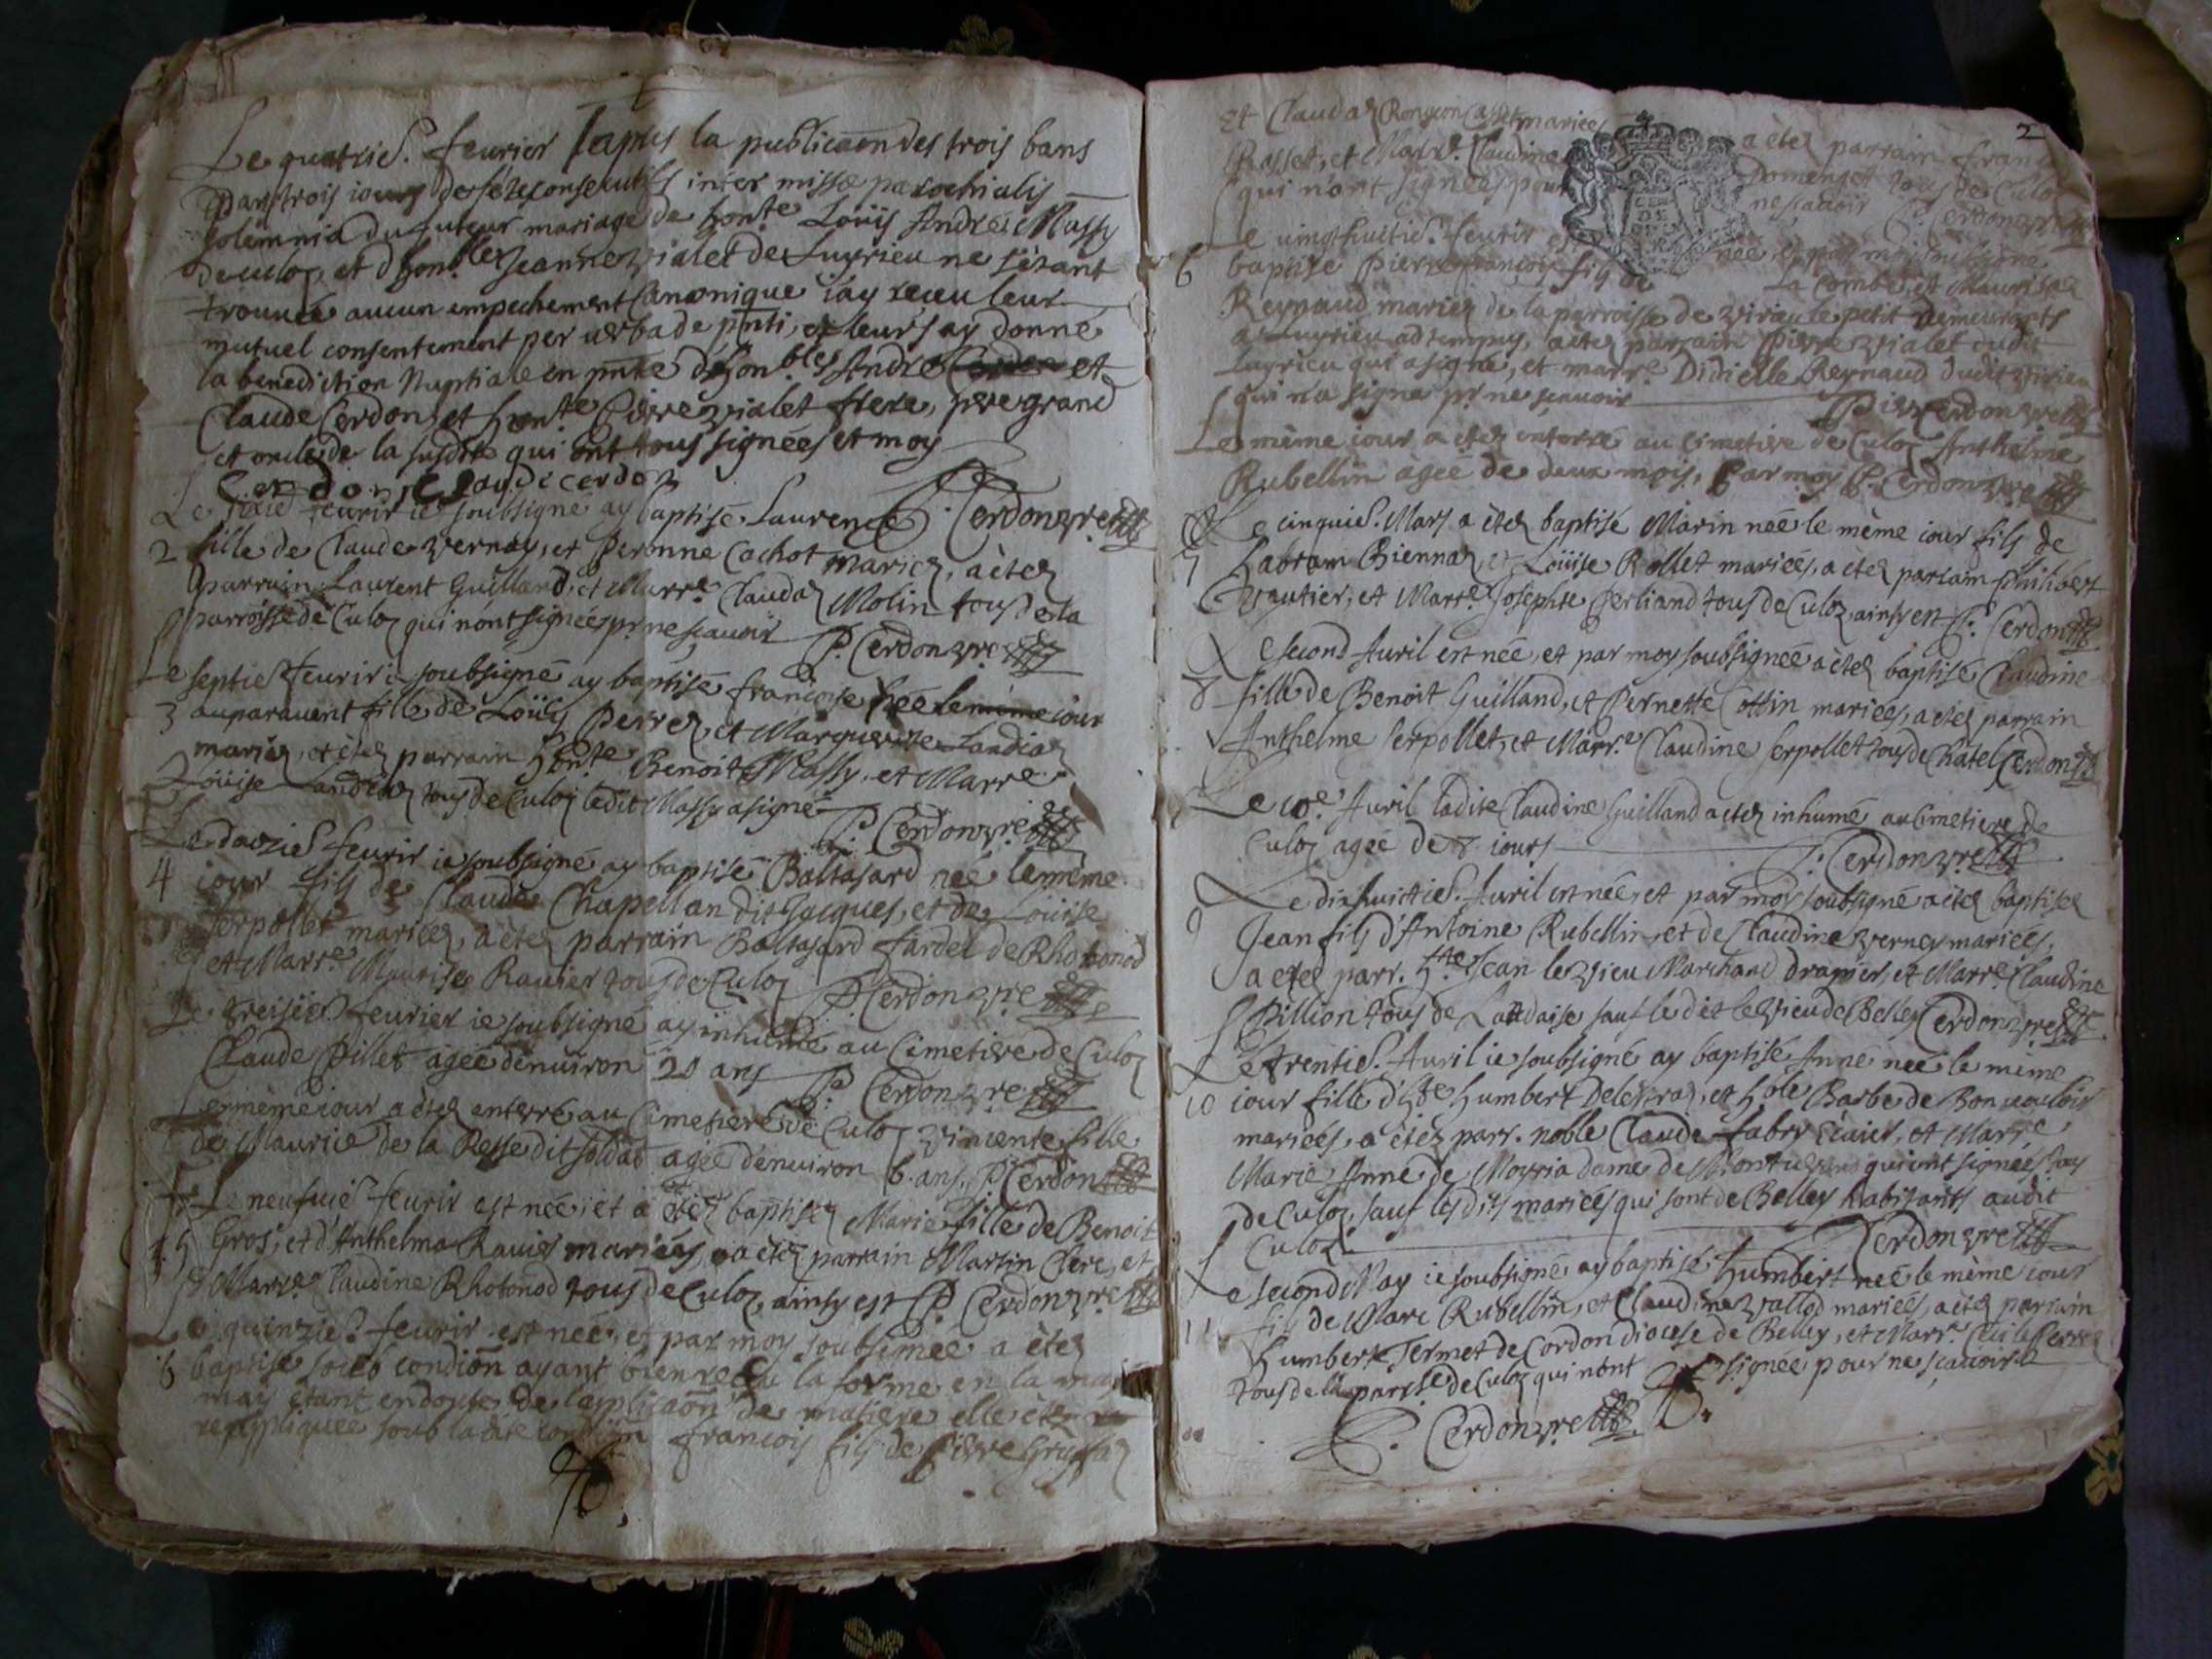 Le quatrie. feurier apres la publicaon des trois bans
pans trois iours de féte consecutifs inter missæ parochialis
solemnia du futeur mariage de honte. Loüis André Massy
de culoz, et d'honbles Jeanne vialet de Luyrieu ne s'étant
trouuée aucun empechement Canonique i'ay receu leur
mutuel consentement per verba de pnti, et leurs ay donné
la benediction Nuptiale en pnce d'honbles André et
Claude Cerdon, et honte Pierre vialet frere, pere grand
et oncle de la susdite qui ont tous signées et moy
Cerdon Claude cerdon
P. Cerdon vre
Le feurir ie soubsigné ay baptisé Laurence
2 fille de Claude vernay, et Peronne Cachot mariez, a étez
parrain Laurent Guilland, et Marre. Claudaz Molin tous de la
parroisse de Culoz qui n'ont signées pr ne scauoir P. Cerdon vre
Le septie feurir ie soubsigné ay baptisé francoise née le même iour
3 auparauent fille de Loüis Perrez, et Marguerite Landiaz
mariez, et étez parrain honte Benoit Massy, et Marre
Loüise Landiaz tous de Culoz ledit Massy a signé
P. Cerdon vre
Le douzie feurir ie soubsigné ay baptisé Baltasard née le même
4 iour fils de Claude Chapellan dit Jacques, et de Loüise
Serpollet mariez, a étez parrain Baltasard fardel de Rhotonod
et Marre. Maurise Rauier tous de Culoz P. Cerdon vre
Le treizie. feurier ie soubsigné ay inhumé au Cimetiere de Culoz
Claude Pillet agée d'enuiron 20 ans P. Cerdon vre
Le même iour a étez enterré au Cimetiere de Culoz vincente fille
de Maurice de la Resse dit soldat agée d'enuiron 6. ans. P. Cerdon
Le neufuie feurir est née, et a étez baptisez Marie fille de Benoit
5 Gros, et d'Anthelma Rauier mariées, a étez parrain Martin Clerc, et
Marre Claudine Rhotonod tous de Culoz, ainsy est P. Cerdon vre
Le quinzie. feurir est née, et par moy soubsignée a étez
6 baptise soub condion ayant bien receu la forme en la
mais étant en doute de l'applicaon de matiere elle étez
reappliquee soub ladite condion francois fils de Pierre
2
Et Claudaz Rongeon mariées a étez parrain
Rosset, et Marre. Claudine Domenget tous de Culoz
qui n'ont signées pour ne scauoir P. Cerdon vre
Le uingthuitie. feurir est née, et par moy soubsigné
6 baptisé Pierre francois fils de La Combe, et Maurisaz
Reynaud mariez de la parroisse de virieu le petit demeurants
a Luyrieu ad tempus, a étez parrain Pierre vialet dudit
Luyrieu qui a signé, et marre. Didielle Reynaud dudit virieu
qui n'a signé pr ne scauoir P. Cerdon vre
Le même iour a étez enterré au Cimetiere de Culoz Anthelme
Rubellin agée de deux mois, par moy P. Cerdon vre
Le cinquie. Mars a étez baptisé Marin née le même iour fils de
7 Labram Biennaz, et Loüise Rollet mariées, a étez parrain Philibert
vautier, et Marre. Josephte Perliand tous de Culoz, ainsy est P. Cerdon
Le second Auril est née, et par moy soubsignée a étez baptisé Claudine
8 fille de Benoit Guilland, et Pernette Cottin mariées, a étez parrain
Anthelme Serpollet, et Marre. Claudine Serpollet tous de Châtel Cerdon
Le 10e. Auril ladite Claudine Guilland a étez inhumé au Cimetiere de
Culoz agée de 8 iours P. Cerdon vre
Le dixhuictie. Auril est née, et par moy soubsigné a étez baptisez
9 Jean fils d'Antoine Rubellin, et de Claudine verney mariées,
a étez parr. hte Jean le vieu Marchand drapier, et Marre. Claudine
Pillion tous de Landaise sauf le dit le vieu de Belley Cerdon vre
Le trentie. Auril ie soubsigné ay baptisé Anne née le même
10 iour fille d'hte humbert Deletraz, et hble Barbe de Bonuouloir
mariées, a étez parr. noble Claude fabry Ecuier, et Marre
Marie Anne de Moyria dame de qui ont signées tous
de Culoz, sauf lesdits mariées qui sont de Belley habitants audit
Culoz. Cerdon vre
Le second May ie soubsigné ay baptisé humbert née le même iour
11 fils de Marc Rubellin, et Claudine vallod mariées, a étez parrain
humbert Termet de Cordon diocese de Belley, et Marre.
tous de la parrse de Culoz qui n'ont signée pour ne scauoir
P. Cerdon vre